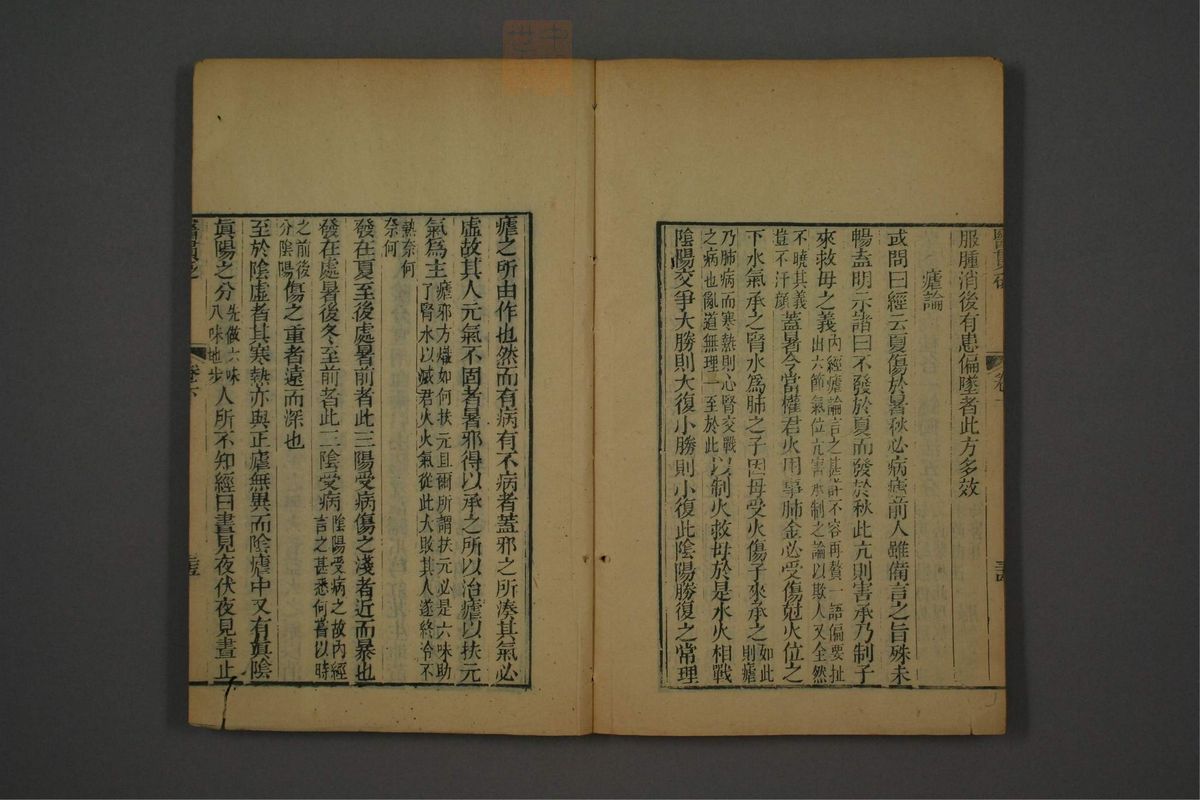 服腫消後有患偏墜者此方多效
瘧論
或問曰經云夏傷於暑秋必病瘧前人雖備言之旨殊未
暢盍明示諸曰不發於夏而發於秋此亢則害承乃制子
來救母之義內經瘧論言之甚詳不容再贅一語偏要扯
出六節氣位亢害承制之論以欺人又全然
不曉其義
豈不汗顏蓋暑令當權君火用事肺金必受傷尅火位之
下水氣承之腎水為肺之子因母受火傷子來承之如此
則瘧
乃肺病而寒熱則心腎交戰
之病也亂道無理一至於此以制火救母於是水火相戰
陰陽交爭大勝則大復小勝則小復此陰陽勝復之常理
醫貫砭
卷下
瘧之所由作也然而有病有不病者蓋邪之所湊其氣必
虛故其人元氣不固者暑邪得以承之所以治瘧以扶元
氣為主瘧邪方熾如何扶元且爾所謂扶元必是六味助
了腎水以滅君火火氣從此大敗其人遂終冷不
熱奈何
奈何
發在夏至後處暑前者此三陽受病傷之淺者近而暴也
發在處暑後冬至前者此三陰受病陰陽受病之故內經
言之甚悉何嘗以時
之前後
分陰陽傷之重者遠而深也
至於陰虛者其寒熱亦與正瘧無異而陰瘧中又有眞陰
眞陽之分先做六味
八味地步人所不知經曰晝見夜伏夜見晝止